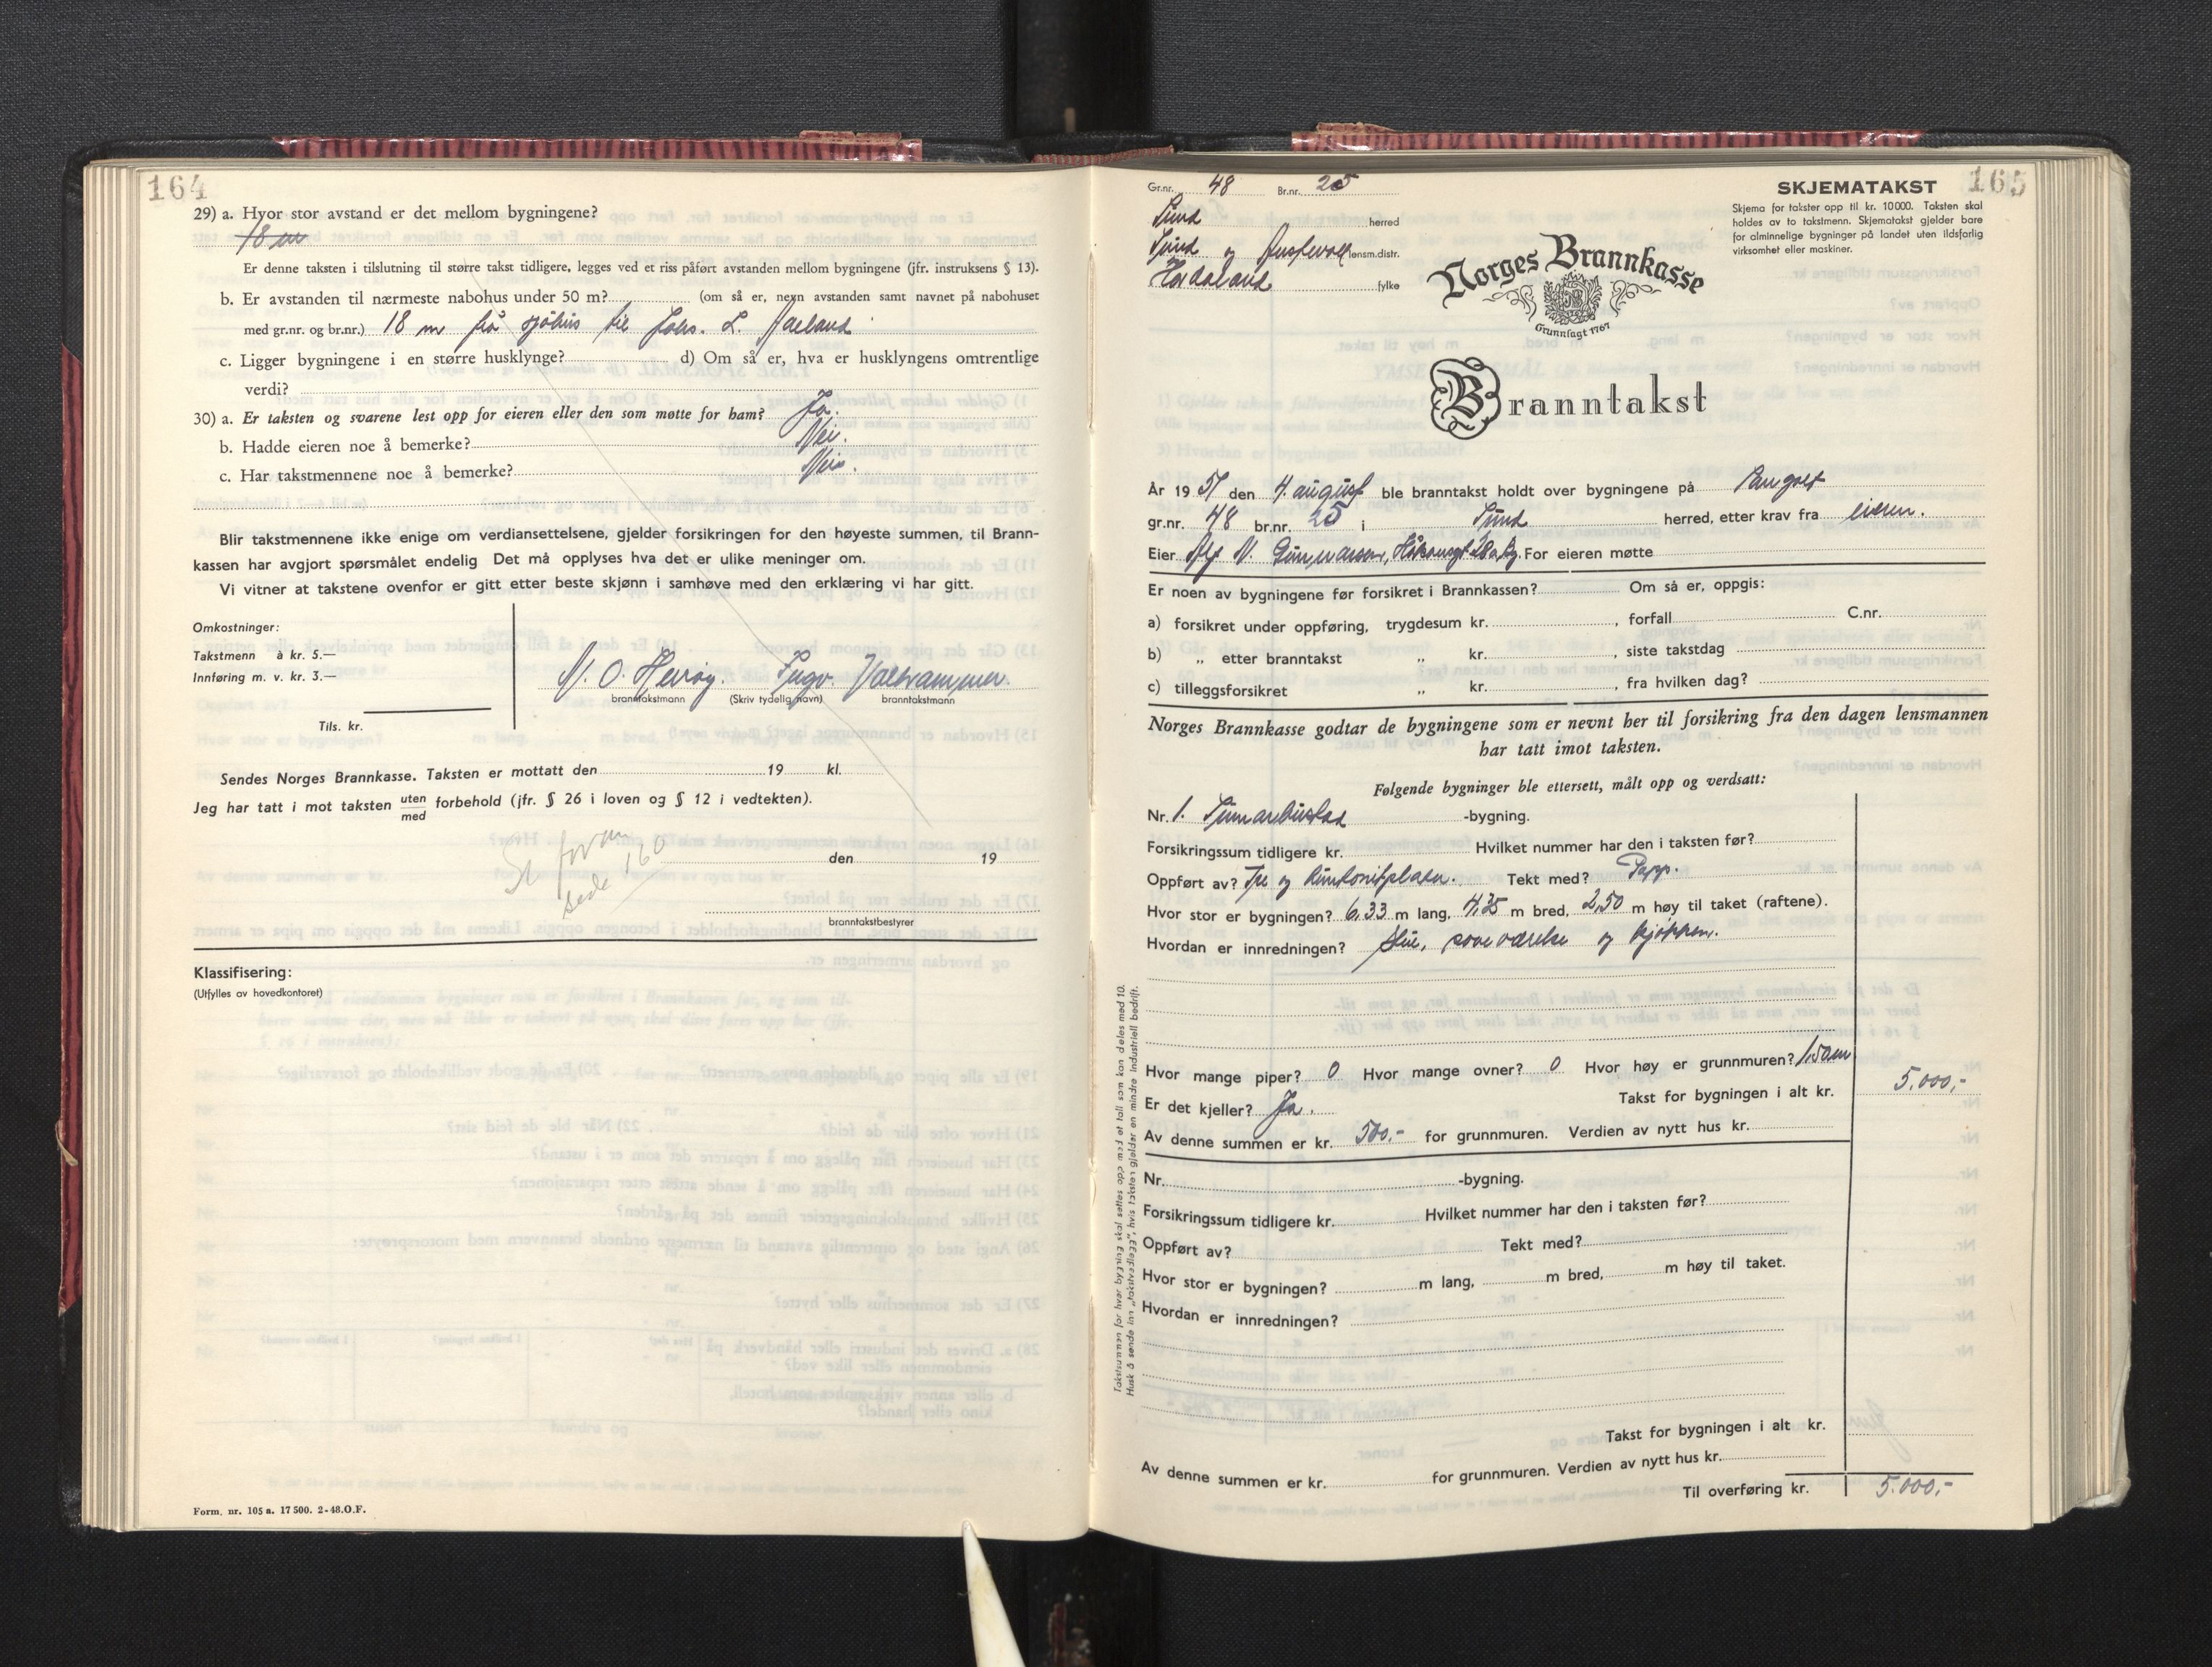 164
29) a. Hvor stor avstand er det mellom bygningene?
18 m
Er denne taksten i tilslutning til større takst tidligere, legges ved et riss påført avstanden mellom bygningene (jfr. instruksens § 13).
b. Er avstanden til nærmeste nabohus under 50 m? (om så er, nevn avstanden samt navnet på nabohuset
med gr.nr. og br.nr.) 18 m frå sjöhus til Johs. L.
c. Ligger bygningene i en større husklynge? d) Om så er, hva er husklyngens omtrentlige
verdi?
30) a. Er taksten og svarene lest opp for eieren eller den som møtte for ham? Ja.
b. Hadde eieren noe å bemerke? Nei.
c. Har takstmennene noe å bemerke? Nei.
Blir takstmennene ikke enige om verdiansettelsene, gjelder forsikringen for den høyeste summen, til Brann-
kassen har avgjort spørsmålet endelig Det må opplyses hva det er ulike meninger om.
Vi vitner at takstene ovenfor er gitt etter beste skjønn i samhøve med den erklæring vi har gitt.
Omkostninger:
Takstmenn à kr. 5.—
Innføring m. v. kr. 3.—
Tils. kr.
N. O. Heiröy. Ingv. Valhammer.
branntakstmann (Skriv tydelig navn) branntakstmann
Sendes Norges Brannkasse. Taksten er mottatt den 19 kl.
Jeg har tatt i mot taksten uten forbehold (jfr. § 26 i loven og § 12 i vedtekten).
med
Se foran
side 160
den 19
branntakstbestyrer
Klassifisering:
(Utfylles av hovedkontoret)
Form. nr. 105 a. 17 500. 2-48.O.F.
165
Gr.nr. 48 Br.nr. 25
Sund herred
Sund og Austevoll lensm.distr.
Hordaland fylke
SKJEMATAKST
Skjema for takster opp til kr. 10 000. Taksten skal
holdes av to takstmenn. Skjematakst gjelder bare
for alminnelige bygninger på landet uten ildsfarlig
virksomhet eller maskiner.
Norges Brannkasse
Grunnlagt 1767
Branntakst
År 1951 den 4. august ble branntakst holdt over bygningene på
gr.nr. 48 br.nr. 25 i Sund herred, etter krav fra eieren.
Eier Alf N. Gunnarson, For eieren møtte
Er noen av bygningene før forsikret i Brannkassen? Om så er, oppgis:
a) forsikret under oppføring, trygdesum kr. , forfall C.nr.
b) „ etter branntakst „ kr. , siste takstdag
c) tilleggsforsikret „ kr. , fra hvilken dag?
Norges Brannkasse godtar de bygningene som er nevnt her til forsikring fra den dagen lensmannen
har tatt imot taksten.
Følgende bygninger ble ettersett, målt opp og verdsatt:
Nr. 1. Sumarbustad -bygning.
Forsikringssum tidligere kr. Hvilket nummer har den i taksten før?
Oppført av? Tre og huntonitplater. Tekt med? Papp.
Hvor stor er bygningen? 6,33 m lang, 4,35 m bred, 2,50 m høy til taket (raftene).
Hvordan er innredningen? Stue, soveværelse og kjökken.
Hvor mange piper? 0 Hvor mange ovner? 0 Hvor høy er grunnmuren?
Er det kjeller? Ja. Takst for bygningen i alt kr. 5.000,-
Av denne summen er kr. 500.- for grunnmuren. Verdien av nytt hus kr.
Nr. -bygning.
Forsikringssum tidligere kr. Hvilket nummer har den i taksten før?
Oppført av? Tekt med?
Hvor stor er bygningen? m lang, m bred, m høy til taket.
Hvordan er innredningen?
Takst for bygningen i alt kr.
Av denne summen er kr. for grunnmuren. Verdien av nytt hus kr.
Til overføring kr. 5.000,-
Takstsummen for hver bygning skal settes opp med et tall som kan deles med 10.